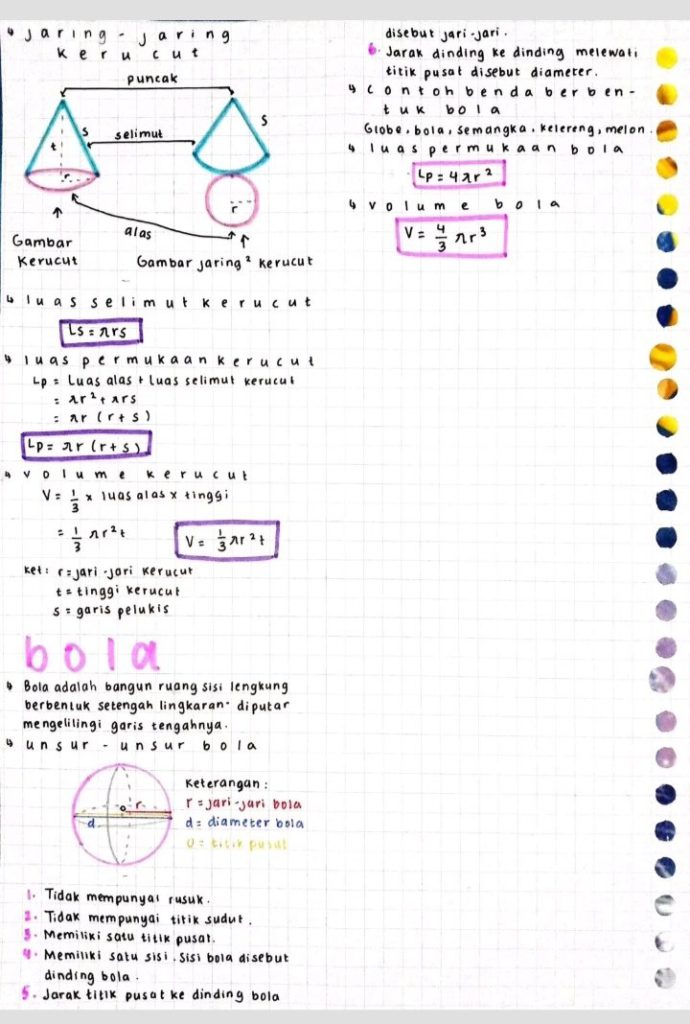 ↳ jaring - jaring
kerucut
puncak
s
s
selimut
t
r
r
alas
Gambar
kerucut
Gambar jaring² kerucut
↳ luas selimut kerucut
Ls = πrs
↳ luas permukaan kerucut
Lp = Luas alas + Luas selimut kerucut
= πr² + πrs
= πr (r+s)
Lp = πr (r+s)
↳ volume kerucut
V = 1/3 × luas alas × tinggi
= 1/3 πr²t
V = 1/3 πr²t
ket : r = jari-jari kerucut
t = tinggi kerucut
s = garis pelukis
bola
↳ Bola adalah bangun ruang sisi lengkung
berbentuk setengah lingkaran diputar
mengelilingi garis tengahnya.
↳ unsur - unsur bola
o
r
d
Keterangan :
r = jari-jari bola
d = diameter bola
O = titik pusat
1. Tidak mempunyai rusuk.
2. Tidak mempunyai titik sudut.
3. Memiliki satu titik pusat.
4. Memiliki satu sisi. Sisi bola disebut
dinding bola.
5. Jarak titik pusat ke dinding bola
disebut jari-jari.
6. Jarak dinding ke dinding melewati
titik pusat disebut diameter.
↳ contoh benda berben-
tuk bola
Globe, bola, semangka, kelereng, melon.
↳ luas permukaan bola
Lp = 4πr²
↳ volume bola
V = 4/3 πr³